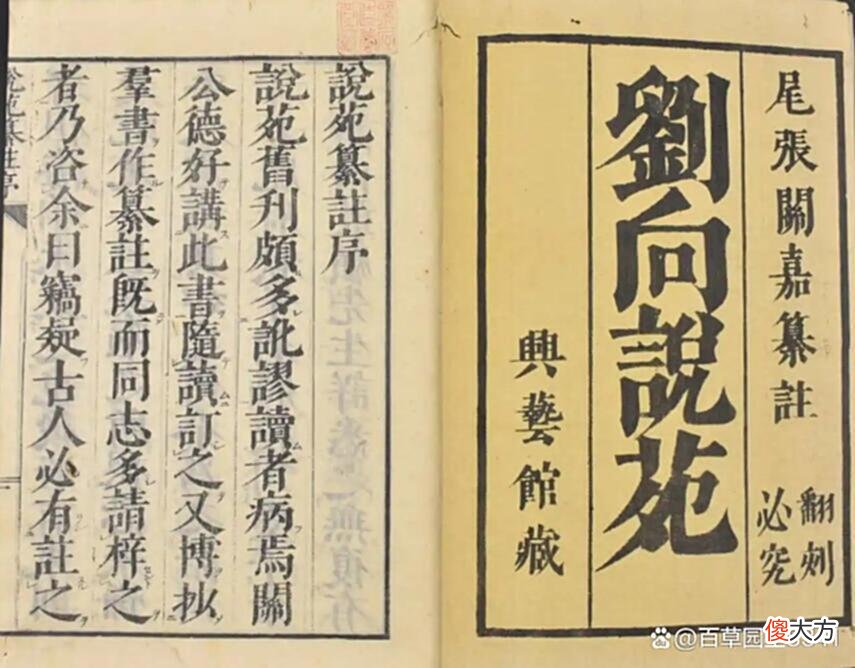 尾張關嘉纂註
翻刻
必究
劉向說苑
興藝館藏
說苑纂註序
說苑舊刊頗多訛謬讀者病焉關
公德好講此書隨讀訂之又博抄
羣書作纂註既而同志多請梓之
者乃咨余曰竊疑古人必有註之
說苑纂註序
百草园
傻大方